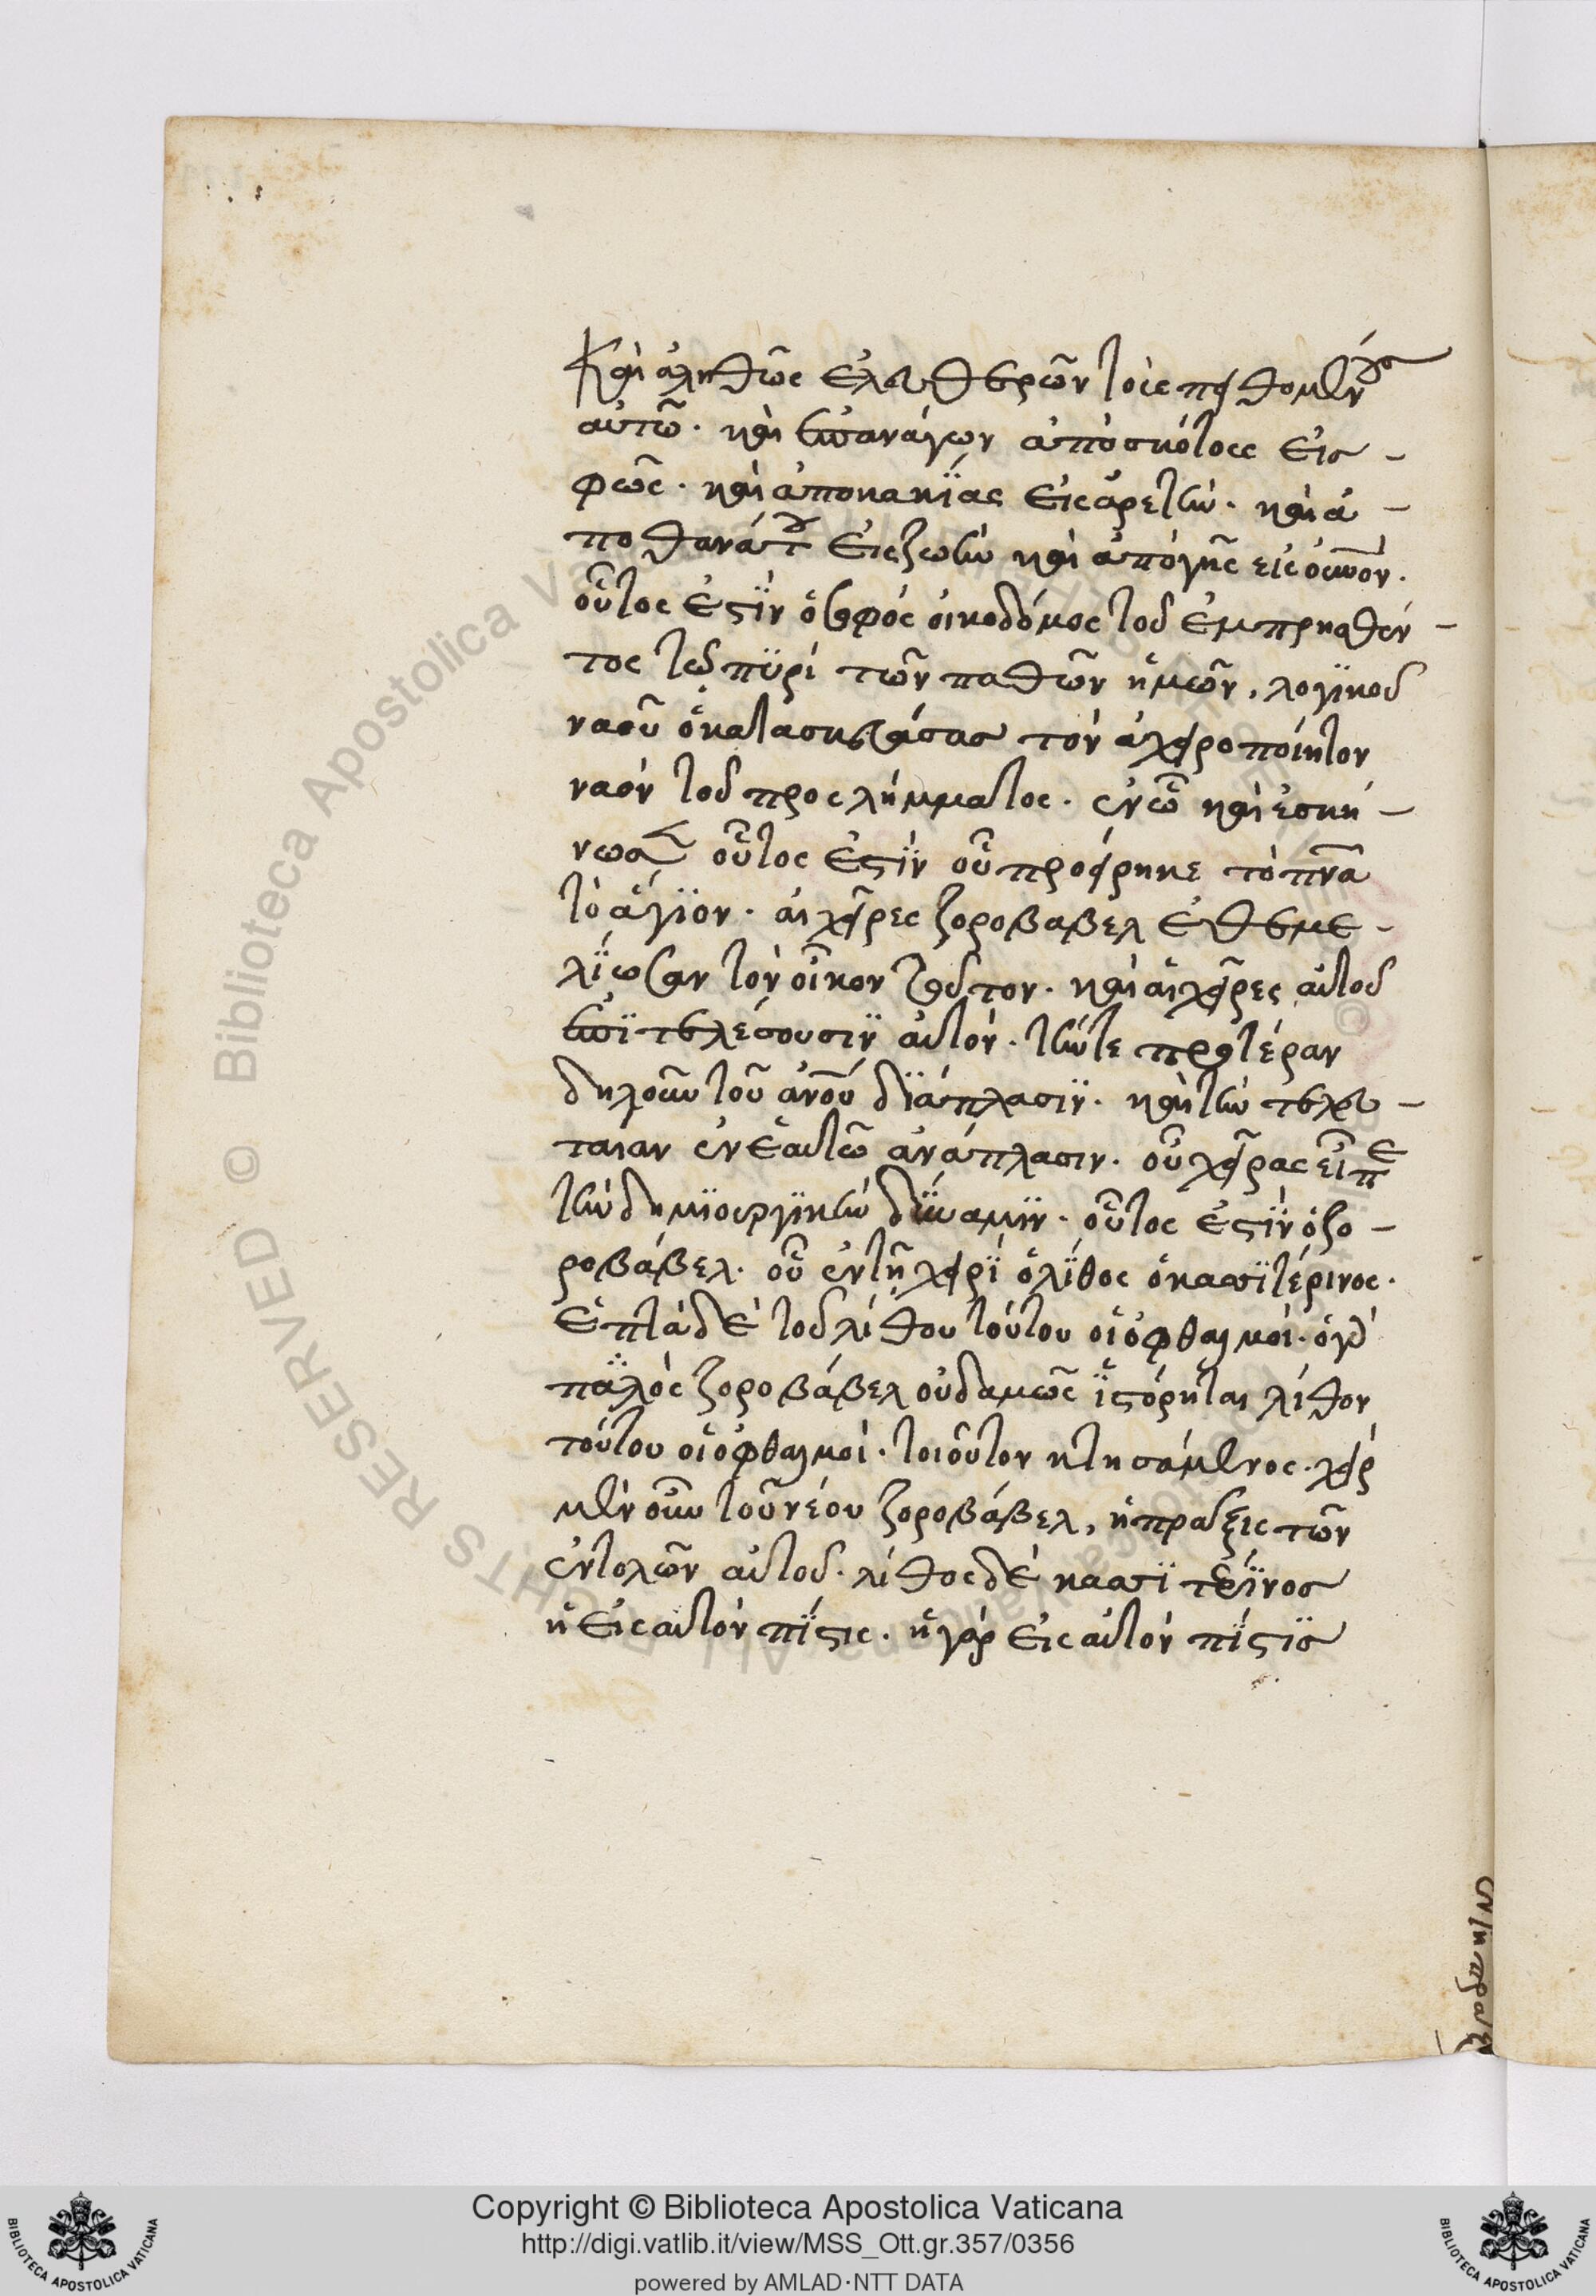 Καὶ ἀληθῶς ἐλευθερῶν τοὺς πειθομένους
αὐτῶ. καὶ ἐπανάγων ἀπὸ σκότους εἰς –
φῶς. καὶ ἀπο κακίας εἰς ἀρετὴν. καὶ ἀ –
πο θανάτου εἰς ζωὴν καὶ ἀπὸ γῆς εἰς οὐνὸν.
οὗτος ἐστὶν ὁ σαφὸς οἰκοδόμος τοῦ ἐμπρησθέν –
τος τῶ πυρὶ τῶν παθῶν ἡμῶν, λογικοῦ
ναοῦ ὁ κατασκευάσας τὸν ἀχειροποίητον
ναὸν τοῦ προσλήμματος. ἐν ὧ καὶ ἐσκή –
νωσεν οὗτος ἐστὶν οὗ προείρηκε τὸ πνα
τὸ ἅγιον. αἱ χεῖρες ζοροβαβελ ἐθεμε –
λίωσαν τὸν οἶκον τοῦτον. καὶ αἱ χεῖρες αὐτοῦ
ἐπιτελέσουσιν αὐτόν. τήν τε προτέραν
δηλοῦν τοῦ ἀνου διάπλασιν. καὶ τὴν τελευ –
ταιαν ἐν ἑαυτῶ ἀνάπλασιν. οὗ χεῖρας εἶπε
τὴν δημιουργικὴν δύναμιν. οὗτος ἐστὶν ὁ ζο –
ροβάβελ. οὗ ἐν τῆ χειρὶ ὁ λίθος ὁ κασσιτέρινος.
ἑπτὰ δὲ τοῦ λίθου τούτου οἱ ὀφθαλμοί. ὁ γὰρ
παλὸς ζοροβάβελ οὐδαμῶς ἱστόρηται λίθον
τούτου οἱ ὀφθαλμοὶ. τοιοῦτον κτησάμενος. χεὶρ
μὲν οὖν τοῦ νέου ζοροβάβελ, ἡ πραξις τῶν
ἐντολῶν αὐτοῦ. λίθος δὲ κασσιτέρινος
ἡ εἰς αὐτὸν πίστις. ἡ γὰρ εἰς αὐτὸν πίστις
Copyright © Biblioteca Apostolica Vaticana
http://digi.vatlib.it/view/MSS_Ott.gr.357/0356
powered by AMLAD·NTT DATA